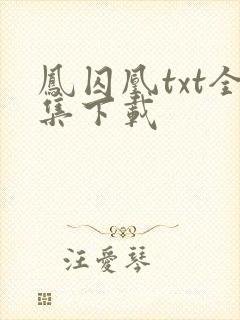 鳳囚凰txt全
集下載
汪愛琴